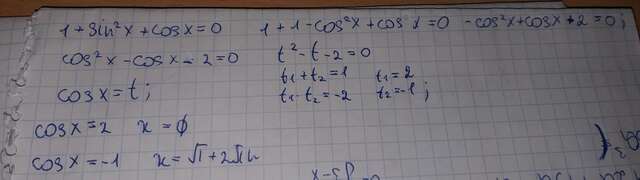 1 + sin²x + cosx = 0   1 + 1 - cos²x + cosx = 0   - cos²x + cosx + 2 = 0;
cos²x - cosx - 2 = 0   t² - t - 2 = 0
t₁ + t₂ = 1   t₁ = 2
cosx = t;   t₁ · t₂ = -2   t₂ = -1;
cosx = 2   x = ϕ
cosx = -1   x = π + 2πn